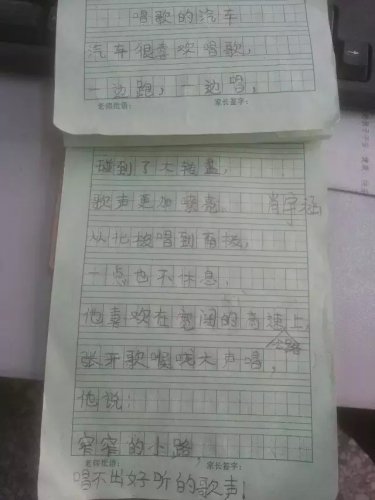 唱歌的汽车
汽车很喜欢唱歌，
一边跑，一边唱，
老师批语： 家长签字：
碰到了大转盘，
歌声更加嘹亮。 肖宇涵
从北校唱到南校，
一点也不休息，
他喜欢在宽阔的高速上，
公路
张开歌喉大声唱，
他说：
窄窄的小路，
老师批语： 家长签字：
唱不出好听的歌声！